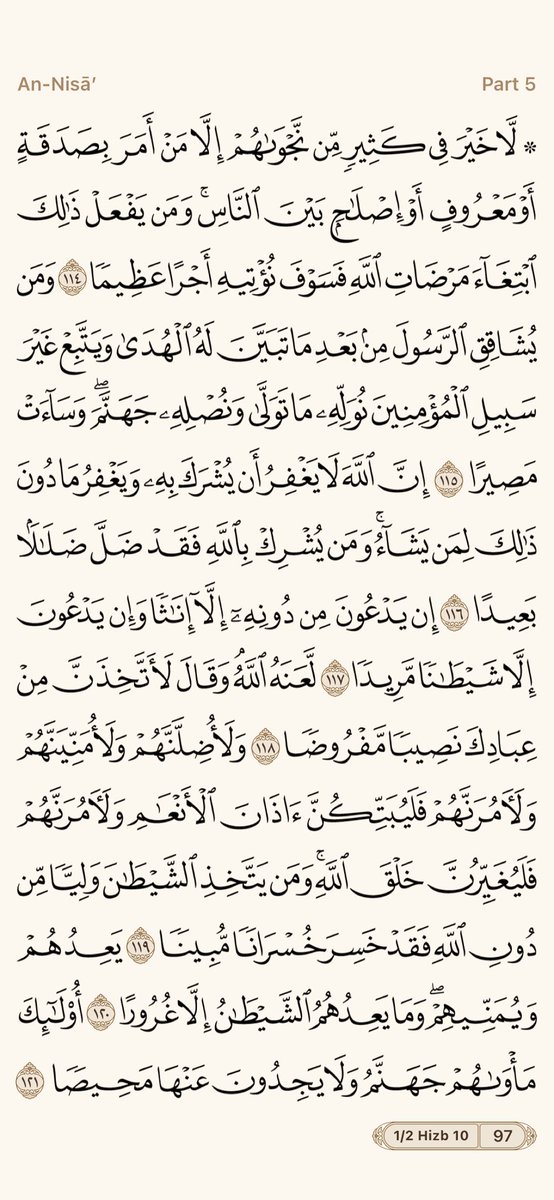 An-Nisā’ Part 5
۞ لَّا خَيْرَ فِى كَثِيرٍ مِّن نَّجْوَىٰهُمْ إِلَّا مَنْ أَمَرَ بِصَدَقَةٍ
أَوْ مَعْرُوفٍ أَوْ إِصْلَـٰحٍۭ بَيْنَ ٱلنَّاسِ ۚ وَمَن يَفْعَلْ ذَٰلِكَ
ٱبْتِغَآءَ مَرْضَاتِ ٱللَّهِ فَسَوْفَ نُؤْتِيهِ أَجْرًا عَظِيمًا ١١٤ وَمَن
يُشَاقِقِ ٱلرَّسُولَ مِنۢ بَعْدِ مَا تَبَيَّنَ لَهُ ٱلْهُدَىٰ وَيَتَّبِعْ غَيْرَ
سَبِيلِ ٱلْمُؤْمِنِينَ نُوَلِّهِۦ مَا تَوَلَّىٰ وَنُصْلِهِۦ جَهَنَّمَ ۖ وَسَآءَتْ
مَصِيرًا ١١٥ إِنَّ ٱللَّهَ لَا يَغْفِرُ أَن يُشْرَكَ بِهِۦ وَيَغْفِرُ مَا دُونَ
ذَٰلِكَ لِمَن يَشَآءُ ۚ وَمَن يُشْرِكْ بِٱللَّهِ فَقَدْ ضَلَّ ضَلَـٰلًۢا
بَعِيدًا ١١٦ إِن يَدْعُونَ مِن دُونِهِۦٓ إِلَّآ إِنَـٰثًا وَإِن يَدْعُونَ
إِلَّا شَيْطَـٰنًا مَّرِيدًا ١١٧ لَّعَنَهُ ٱللَّهُ ۘ وَقَالَ لَأَتَّخِذَنَّ مِنْ
عِبَادِكَ نَصِيبًا مَّفْرُوضًا ١١٨ وَلَأُضِلَّنَّهُمْ وَلَأُمَنِّيَنَّهُمْ
وَلَـَٔامُرَنَّهُمْ فَلَيُبَتِّكُنَّ ءَاذَانَ ٱلْأَنْعَـٰمِ وَلَـَٔامُرَنَّهُمْ
فَلَيُغَيِّرُنَّ خَلْقَ ٱللَّهِ ۚ وَمَن يَتَّخِذِ ٱلشَّيْطَـٰنَ وَلِيًّا مِّن
دُونِ ٱللَّهِ فَقَدْ خَسِرَ خُسْرَانًا مُّبِينًا ١١٩ يَعِدُهُمْ
وَيُمَنِّيهِمْ ۖ وَمَا يَعِدُهُمُ ٱلشَّيْطَـٰنُ إِلَّا غُرُورًا ١٢٠ أُو۟لَـٰٓئِكَ
مَأْوَىٰهُمْ جَهَنَّمُ وَلَا يَجِدُونَ عَنْهَا مَحِيصًا ١٢١
1/2 Hizb 10 97